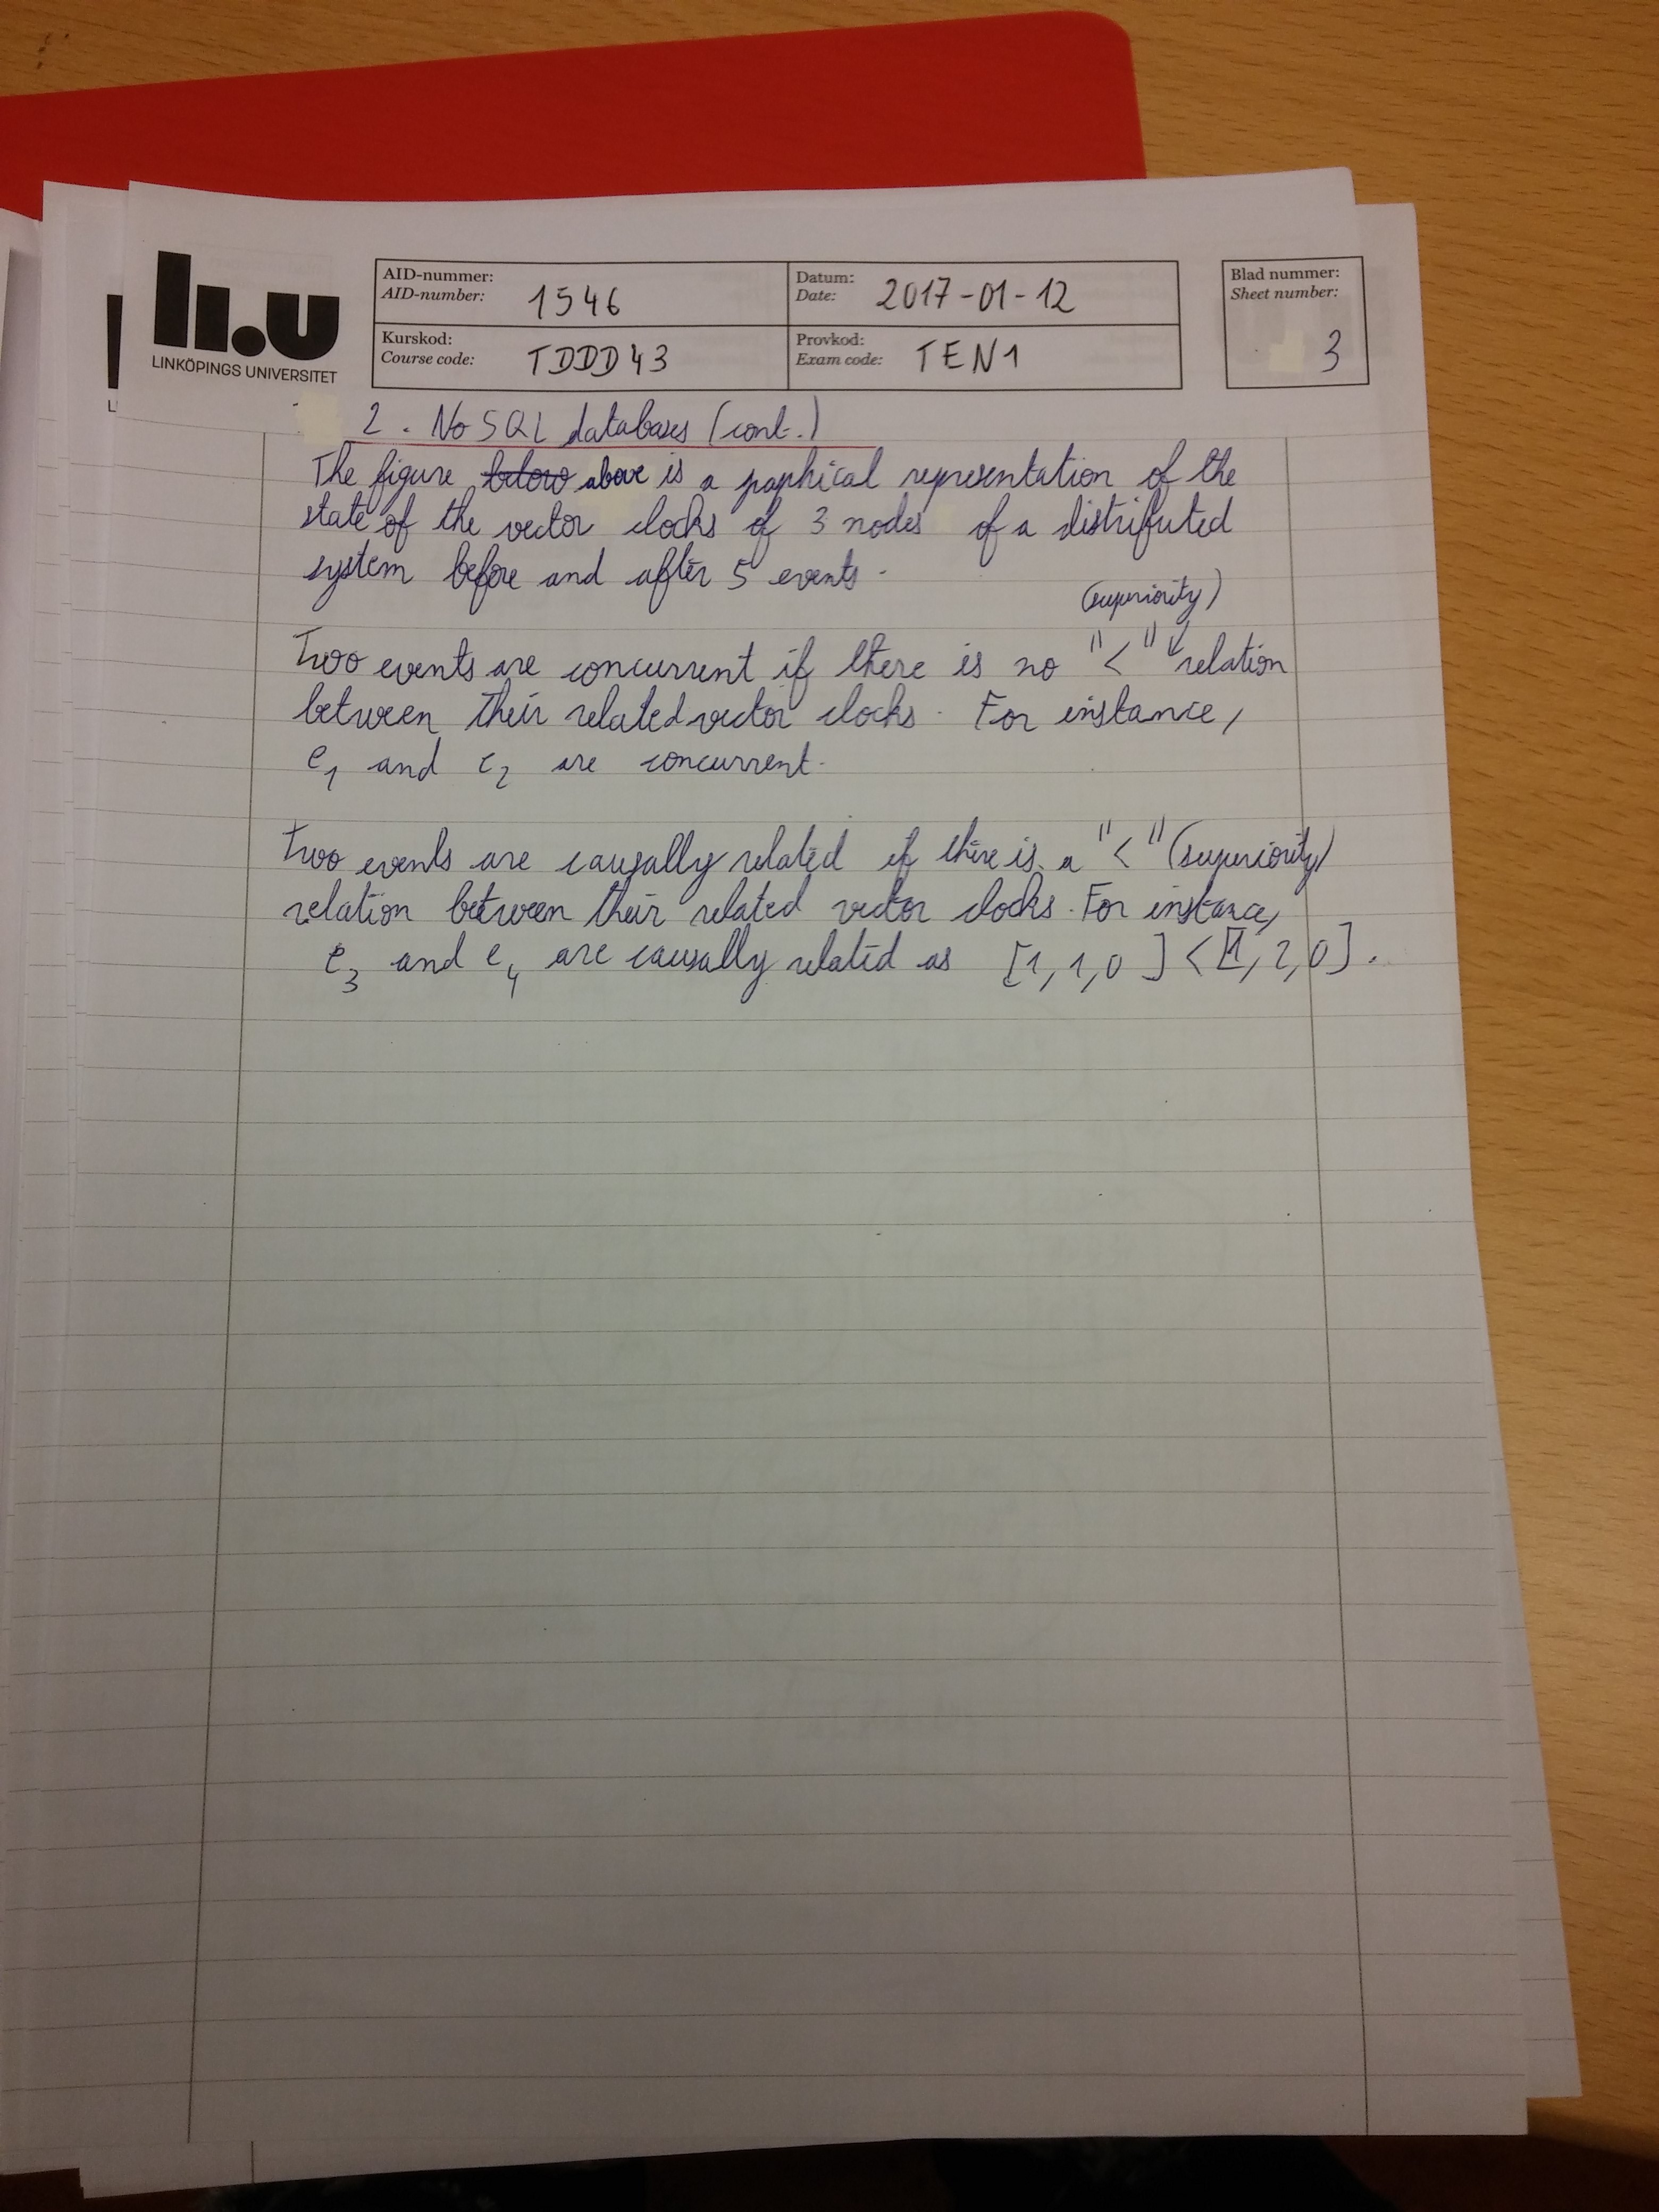 li.u
LINKÖPINGS UNIVERSITET
AID-nummer:
AID-number: 1546
Datum:
Date: 2017-01-12
Kurskod:
Course code: TDDD43
Provkod:
Exam code: TEN1
Blad nummer:
Sheet number:
3
2. NoSQL databases (cont.)
The figure below above is a graphical representation of the
state of the vector clocks of 3 nodes of a distributed
system before and after 5 events.
(superiority)
Two events are concurrent if there is no "<" relation
between their related vector clocks. For instance,
e1 and e2 are concurrent.
Two events are causally related if there is a "<" (superiority)
relation between their related vector clocks. For instance,
e3 and e4 are causally related as [1,1,0] < [1,2,0].